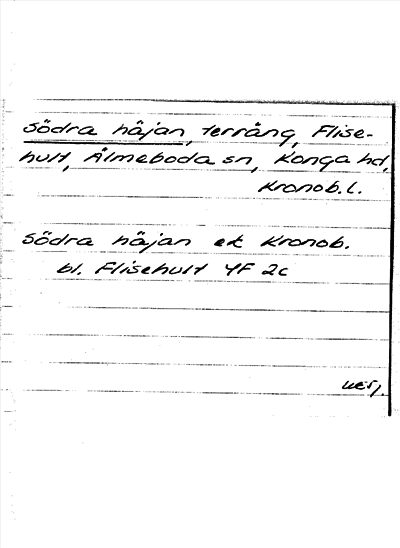 Södra häjan, terräng, Flise-
hult, Älmeboda sn, Konga hd,
Kronob. l.
Södra häjan ek Kronob.
bl. Flisehult 4F 2c